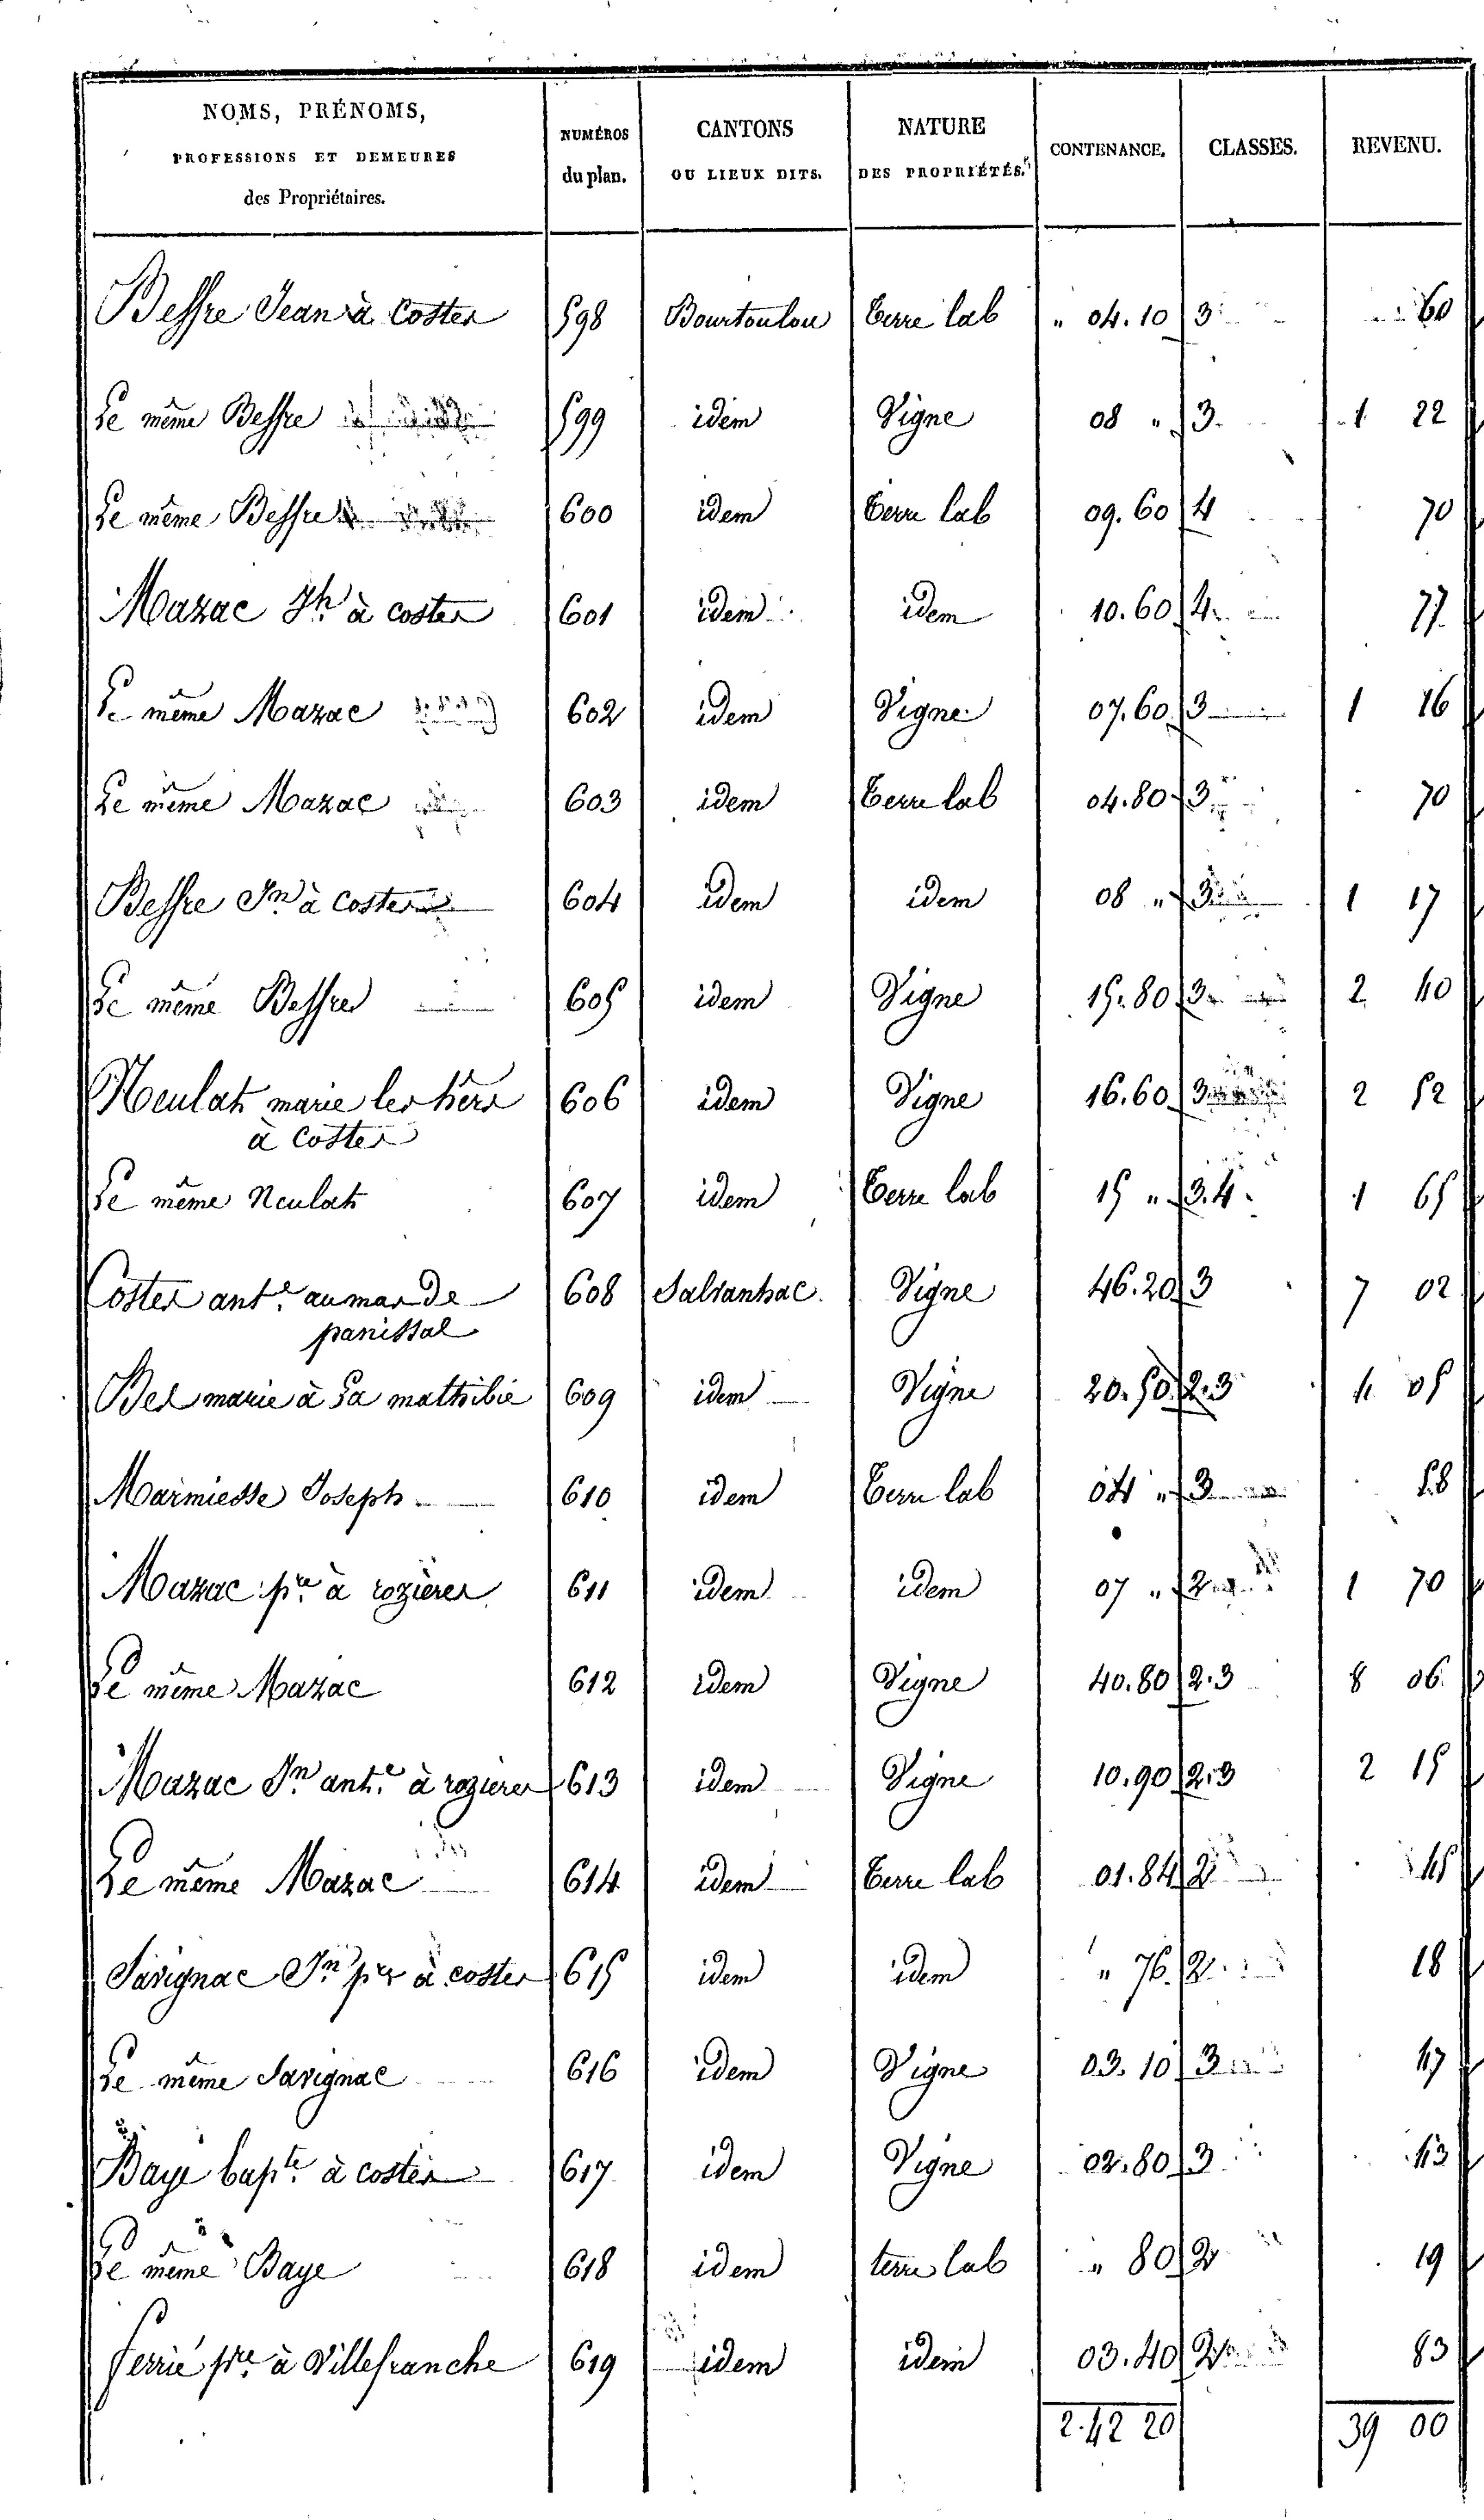 NOMS, PRÉNOMS, PROFESSIONS ET DEMEURES des Propriétaires. | NUMÉROS du plan. | CANTONS OU LIEUX DITS. | NATURE DES PROPRIÉTÉS. | CONTENANCE. | CLASSES. | REVENU.
Bessre Jean à Coster 598 Bourtoulou Terre lab " 04.10 3 60
Le même Bessre 599 idem Vigne 08 " 3. 1 22
Le même Bessre 600 idem Terre lab 09.60 4 70
Mazac Jh. à coster 601 idem idem 10.60 4 77
Le même Mazac 602 idem Vigne 07.60 3 1 16
Le même Mazac 603 idem Terre lab 04.80 3 70
Bessre Jn à coster 604 idem idem 08 " 3 1 17
Le même Bessre 605 idem Vigne 15.80 3 2 40
Neulat marie les hérs 606 idem Vigne 16.60 3 2 52
à Coster
Le même Neulat 607 idem Terre lab 15 " 3.4. 1 65
Coster ant.e au mas de 608 Salvanhac. Vigne 46.20 3 7 02
panissal
Bes marie à La mathibie 609 idem Vigne 20.50 2.3 4 05
Marmiesse Joseph 610 idem Terre lab 04 " 3 58
Mazac pre à rozieres 611 idem idem 07 " 2 1 70
Le même Mazac 612 idem Vigne 40.80 2.3 8 06
Mazac Jn ant.e à rozieres 613 idem Vigne 10.90 2.3 2 15
Le même Mazac 614 idem Terre lab 01.84 2 45
Savignac Jn pre à coster 615 idem idem " 76. 2 18
Le même Savignac 616 idem Vigne 03.10 3 47
Baye bapte. à coster 617 idem Vigne 02.80 3 43
Le même Baye 618 idem terre lab " 80 2 19
Ferrié pre. à Villefranche 619 idem idem 03.40 2 83
2.42 20 39 00